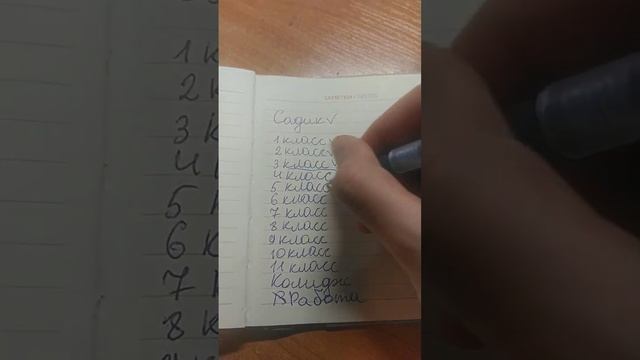 Садик✓
1 класс✓
2 класс✓
3 класс✓
4 класс
5 класс
6 класс
7 класс
8 класс
9 класс
10 класс
11 класс
Колидж
Работа